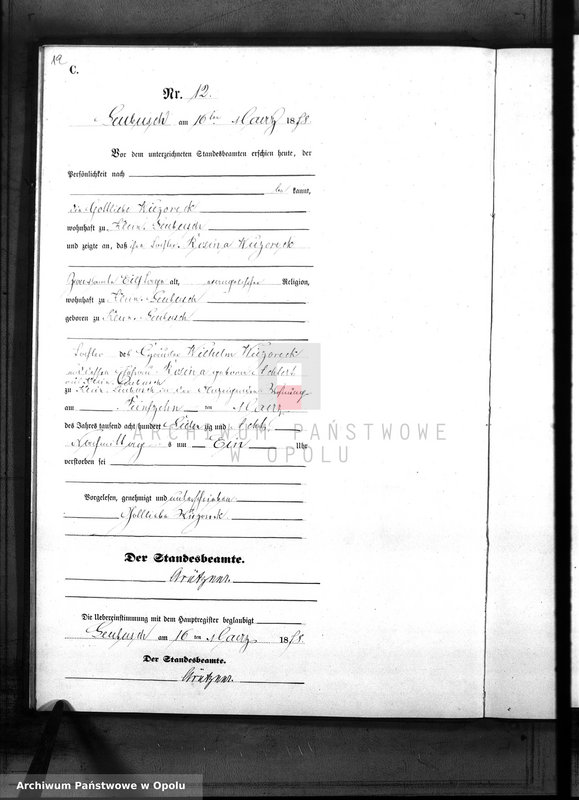 12
C.
Nr. 12.
Leubusch am 16ten Maerz 1878
Vor dem unterzeichneten Standesbeamten erschien heute, der
Persönlichkeit nach
be kannt,
die Gottliebe Kuzoreck
wohnhaft zu Klein Leubusch
und zeigte an, daß ihre Tochter Rosina Kuzoreck
alt, evangelischer Religion,
wohnhaft zu Klein Leubusch
geboren zu Klein Leubusch
Tochter des Wilhelm Kuzoreck
Rosina geborene
Klein Leubusch
zu Klein Leubusch in der Wohnung
am Fünfzehn ten Maerz
des Jahres tausend acht hundert siebenzig und acht
Nachmittags um Ein Uhr
verstorben sei
Vorgelesen, genehmigt und unterschrieben
Gottliebe Kuzoreck
Der Standesbeamte.
Die Uebereinstimmung mit dem Hauptregister beglaubigt
Leubusch am 16 ten Maerz 1878
Der Standesbeamte.
ARCHIWUM PAŃSTWOWE
W OPOLU
Archiwum Państwowe w Opolu